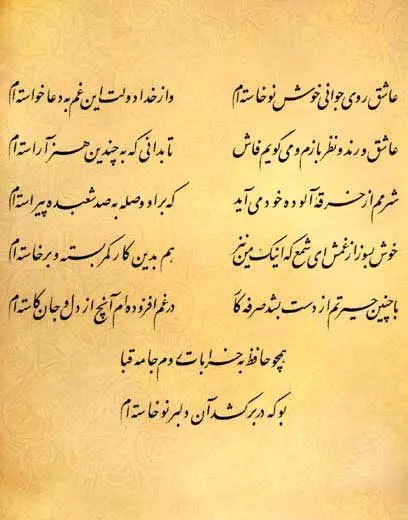 عاشق روی جوانی خوش نوخاسته‌ام وز خدا دولت این غم به دعا خواسته‌ام
عاشق و رند و نظربازم و می‌گویم فاش تا بدانی که به چندین هنر آراسته‌ام
شرمم از خرقه آلوده خود می‌آید که بر او وصله به صد شعبده پیراسته‌ام
خوش بسوز از غمش ای شمع که اینک من نیز هم بدین کار کمر بسته و برخاسته‌ام
با چنین حیرتم از دست بشد صرفه کار در غم افزوده‌ام آنچ از دل و جان کاسته‌ام
همچو حافظ به خرابات روم جامه قبا
بو که در بر کشد آن دلبر نوخاسته‌ام